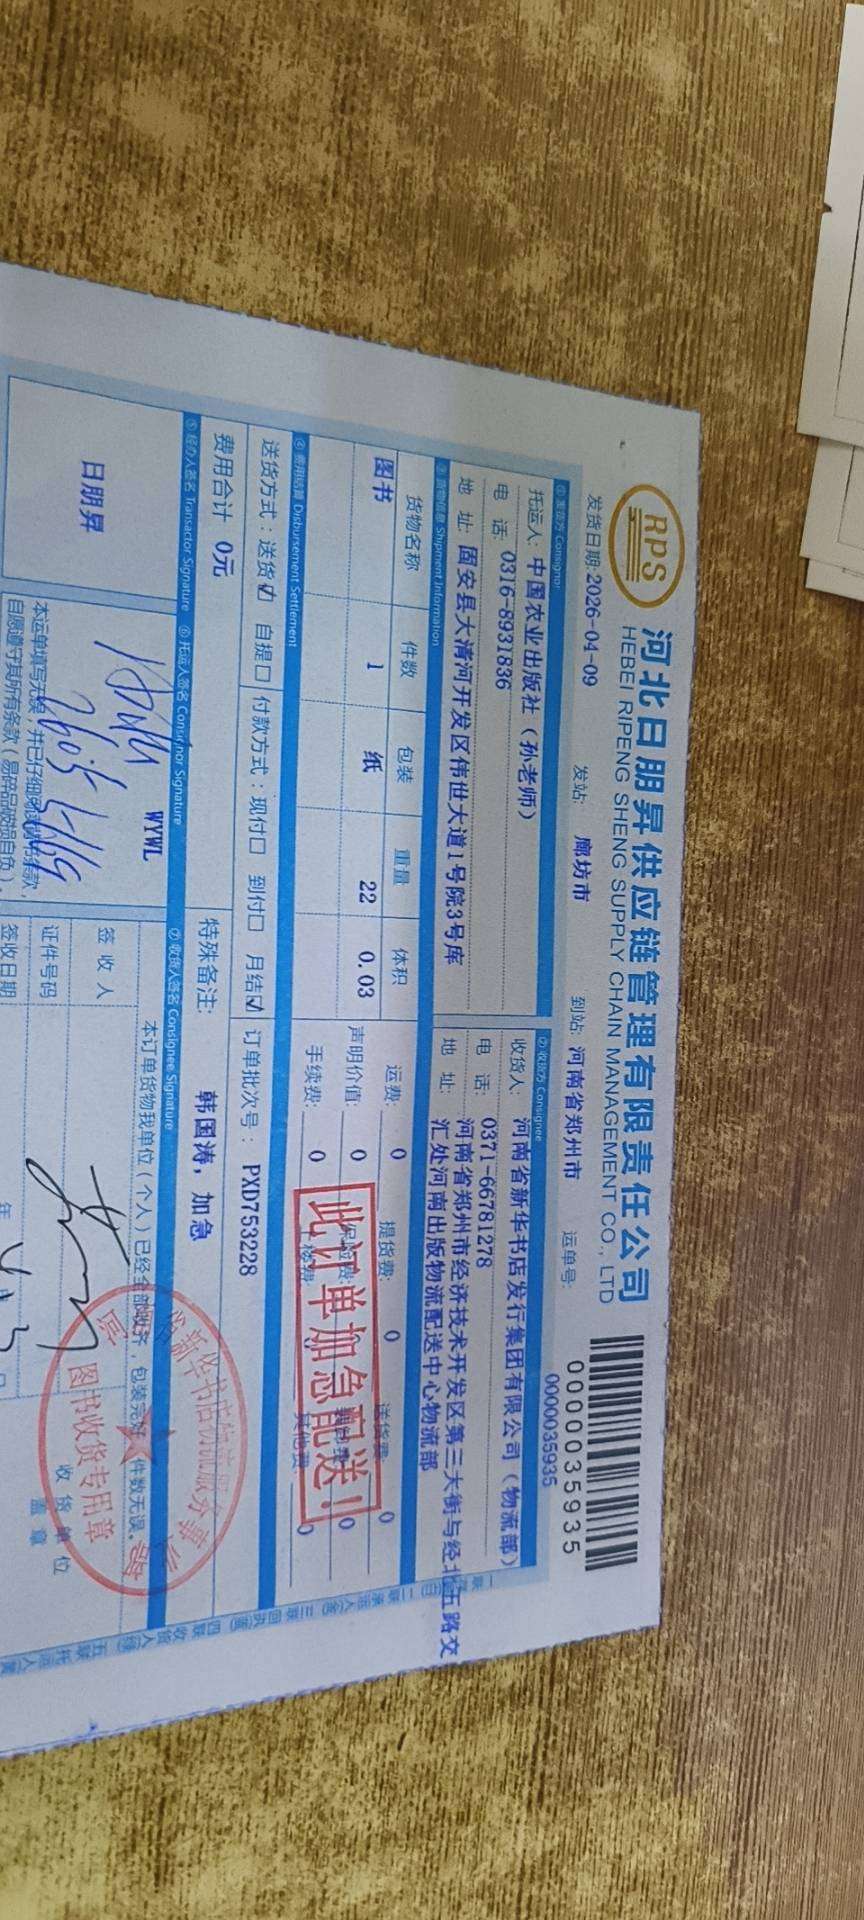 RPS
河北日朋昇供应链管理有限责任公司
HEBEI RIPENG SHENG SUPPLY CHAIN MANAGEMENT CO., LTD
0000035935
发货日期:2026-04-09 发站: 廊坊市 到站: 河南省郑州市 运单号: 0000035935
①发货方 Consignor
托运人: 中国农业出版社（孙老师）
电 话: 0316-8931836
地 址: 固安县大清河开发区伟世大道1号院3号库
②收货方 Consignee
收货人: 河南省新华书店发行集团有限公司（物流部）
电 话: 0371-66781278
地 址: 河南省郑州市经济技术开发区第三大街与经北五路交
汇处河南出版物流配送中心物流部
③货物信息 Shipment Information
货物名称 件数 包装 重量 体积
图书 1 纸 22 0.03
运费: 0 提货费: 0 送货费: 0
声明价值: 0 保险费: 0
手续费: 0 上楼费: 0 其他费: 0
此订单加急配送！
④费用结算 Disbursement Settlement
送货方式：送货☑ 自提☐ 付款方式：现付☐ 到付☐ 月结☑ 订单批次号： PXD753228
费用合计 0元 特殊备注: 韩国涛，加急
⑤经办人签名 Transactor Signature ⑥托运人签名 Consignor Signature ⑦收货人签名 Consignee Signature
日朋昇
WYWL
本运单填写无误，并已仔细阅读背书条款，
自愿遵守其所有条款（易碎品破损自负）。
本订单货物我单位（个人）已经全部收齐，包装完好，件数无误。
签 收 人
证件号码
签收日期 年
收 货 单 位
盖 章
图书收货专用章